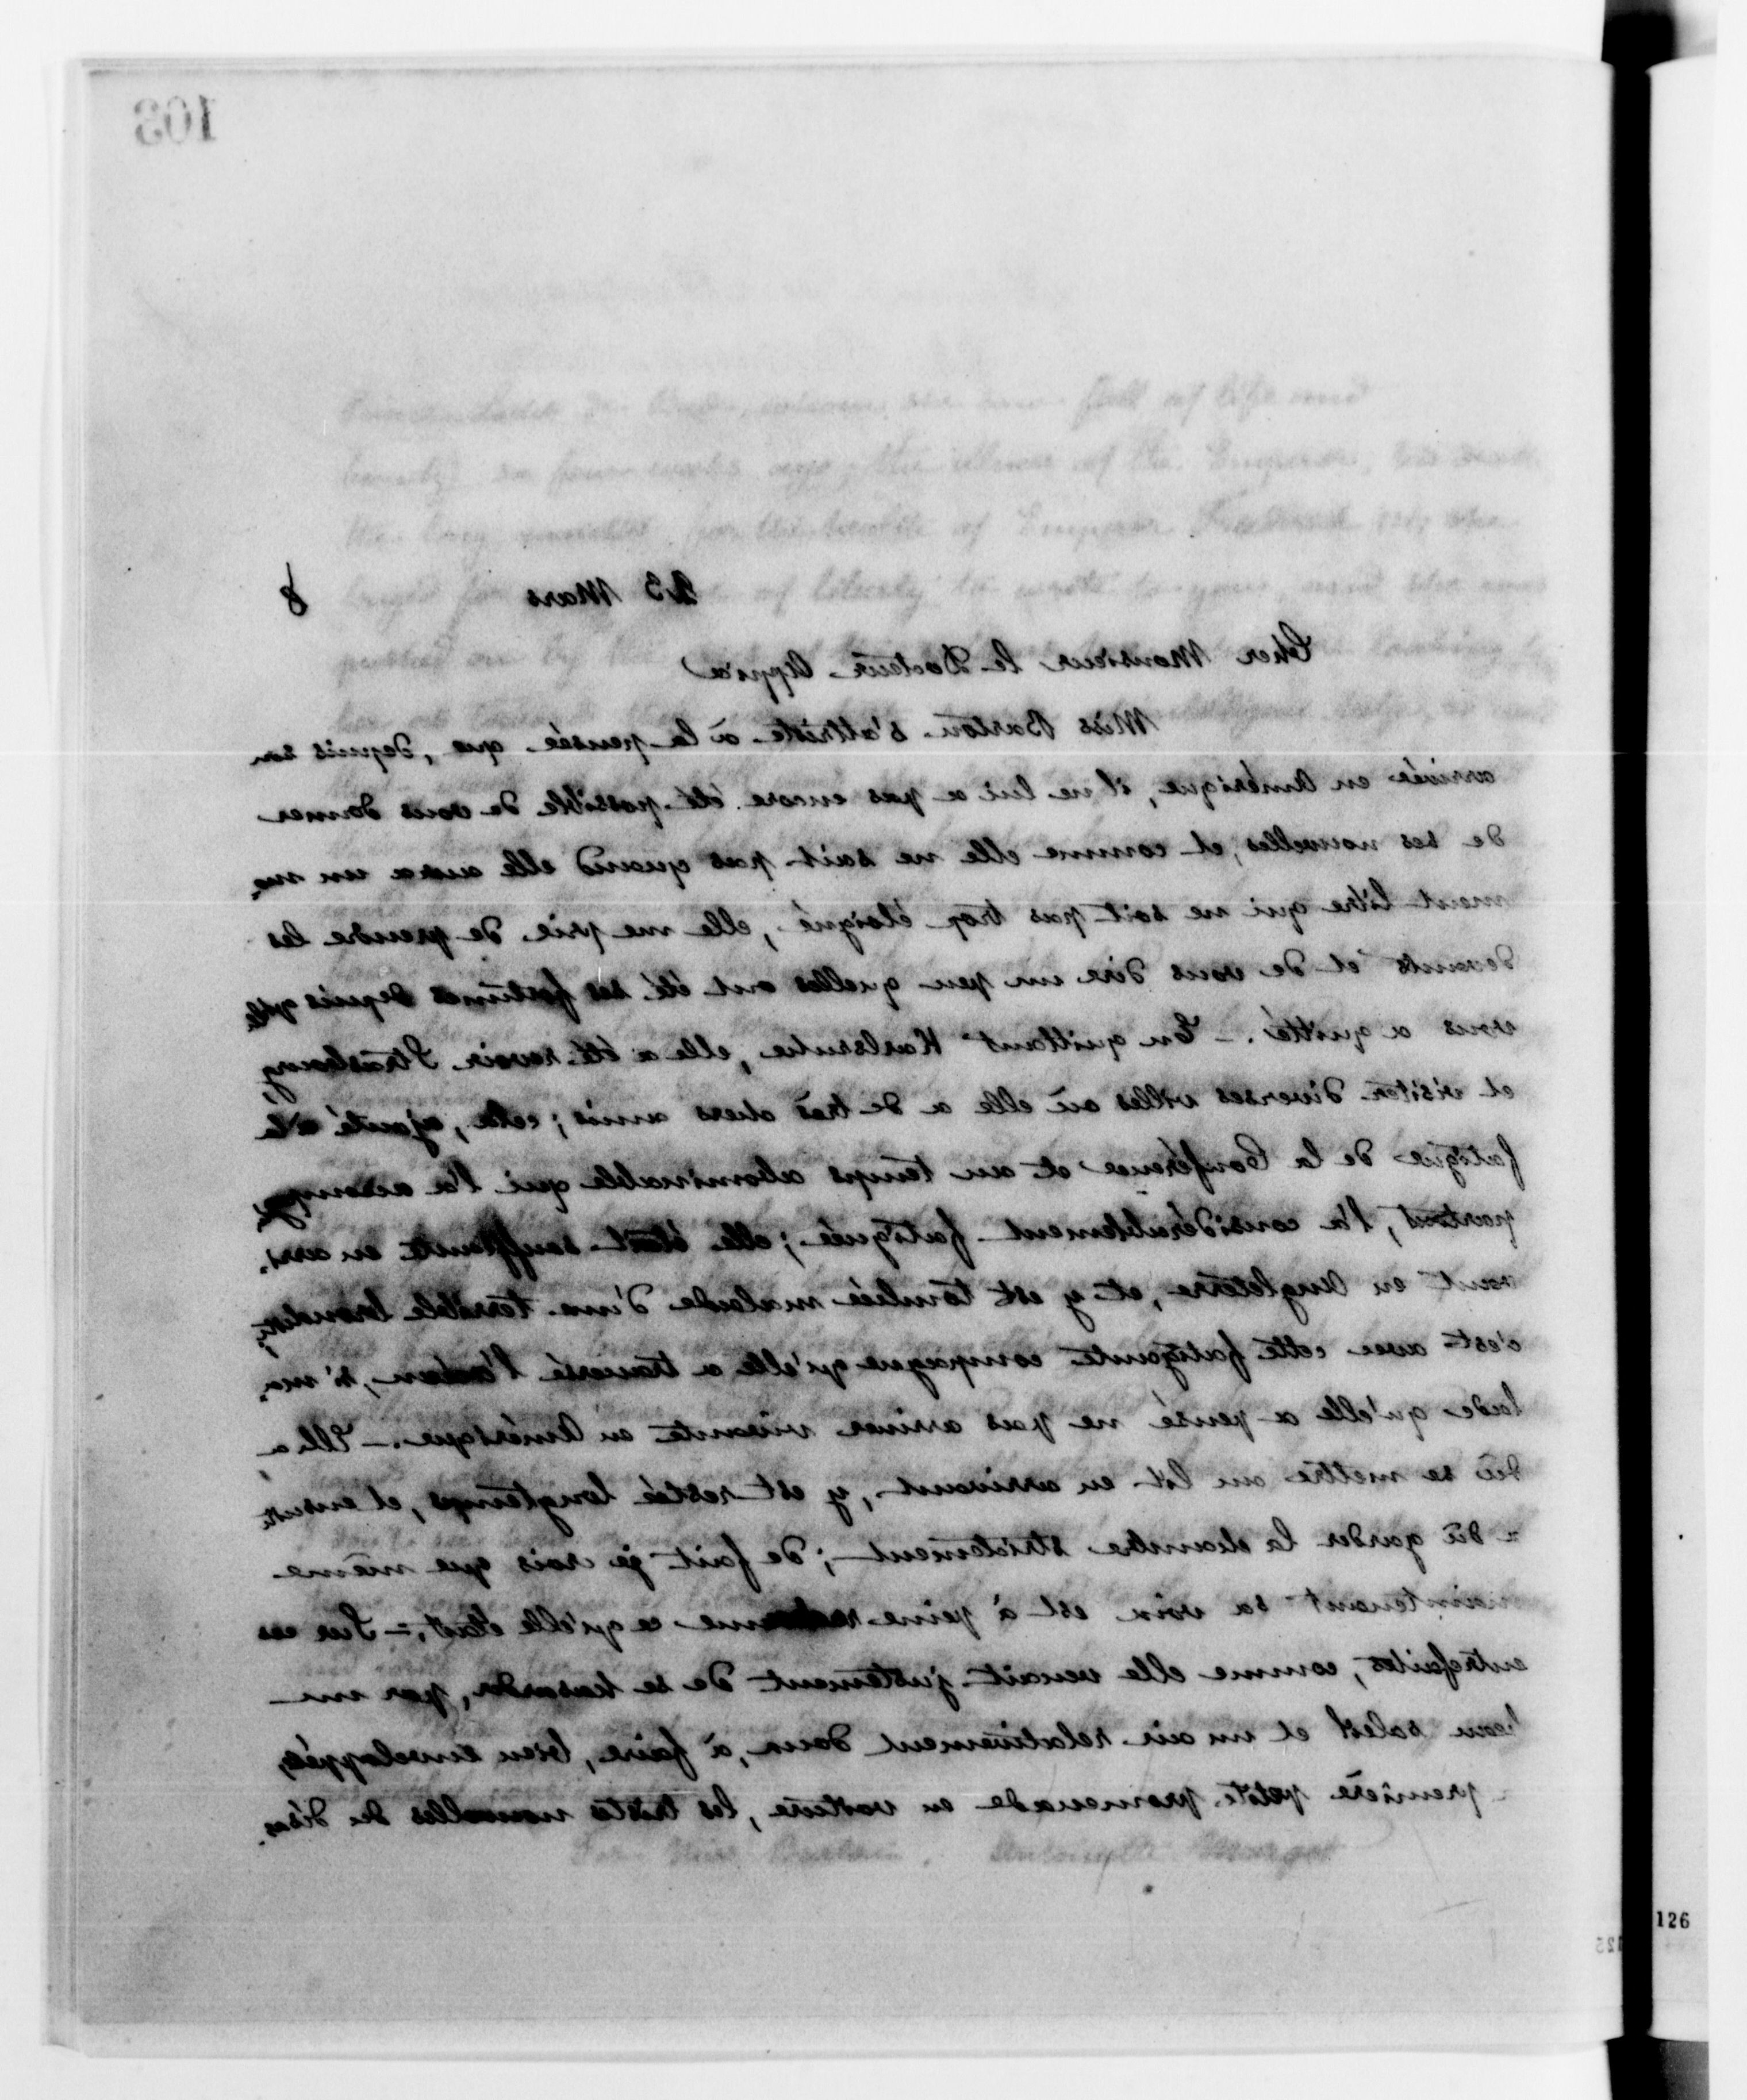 103
full of life and
ago, the illness of the Emperor,
of Emperor
23 Mars 8
of liberty to write to you, and
Cher Monsieur le Docteur Appia
Miss Barton s'attriste à la pensée que, depuis son
arrivée en Amérique, il ne lui a pas encore été possible de vous donner
de ses nouvelles, et comme elle ne sait pas quand elle aura un mo-
ment libre qui ne soit pas trop éloigné, elle me prie de prendre les
devants et de vous dire un peu quelles ont été ses fortunes depuis qu'elle
vous a quitté. – En quittant Karlsruhe, elle a été revoir Strasbourg,
et visiter diverses villes où elle a de très chers amis; cela, ajouté à la
fatigue de la Conférence et au temps abominable qui l'a
partout, l'a considérablement fatiguée; elle était souffrante en arri-
vant en Angleterre, et y est tombée malade d'une terrible bronchite;
c'est avec cette fatigante compagne qu'elle a traversé l'océan, si ma-
lade qu'elle a pensé ne pas arriver vivante en Amérique. – Elle a
dû se mettre au lit en arrivant, y est restée longtemps, et ensuite
dû garder la chambre strictement; de fait je crois que même
maintenant sa voix est à peine ce qu'elle était. – Sur ces
entrefaites, comme elle venait justement de se hasarder, par un
beau soleil et un air relativement doux, à faire, bien enveloppée,
première petite promenade en voiture, les tristes nouvelles du désas-
For Miss Barton. Antoinette Margot
125
126